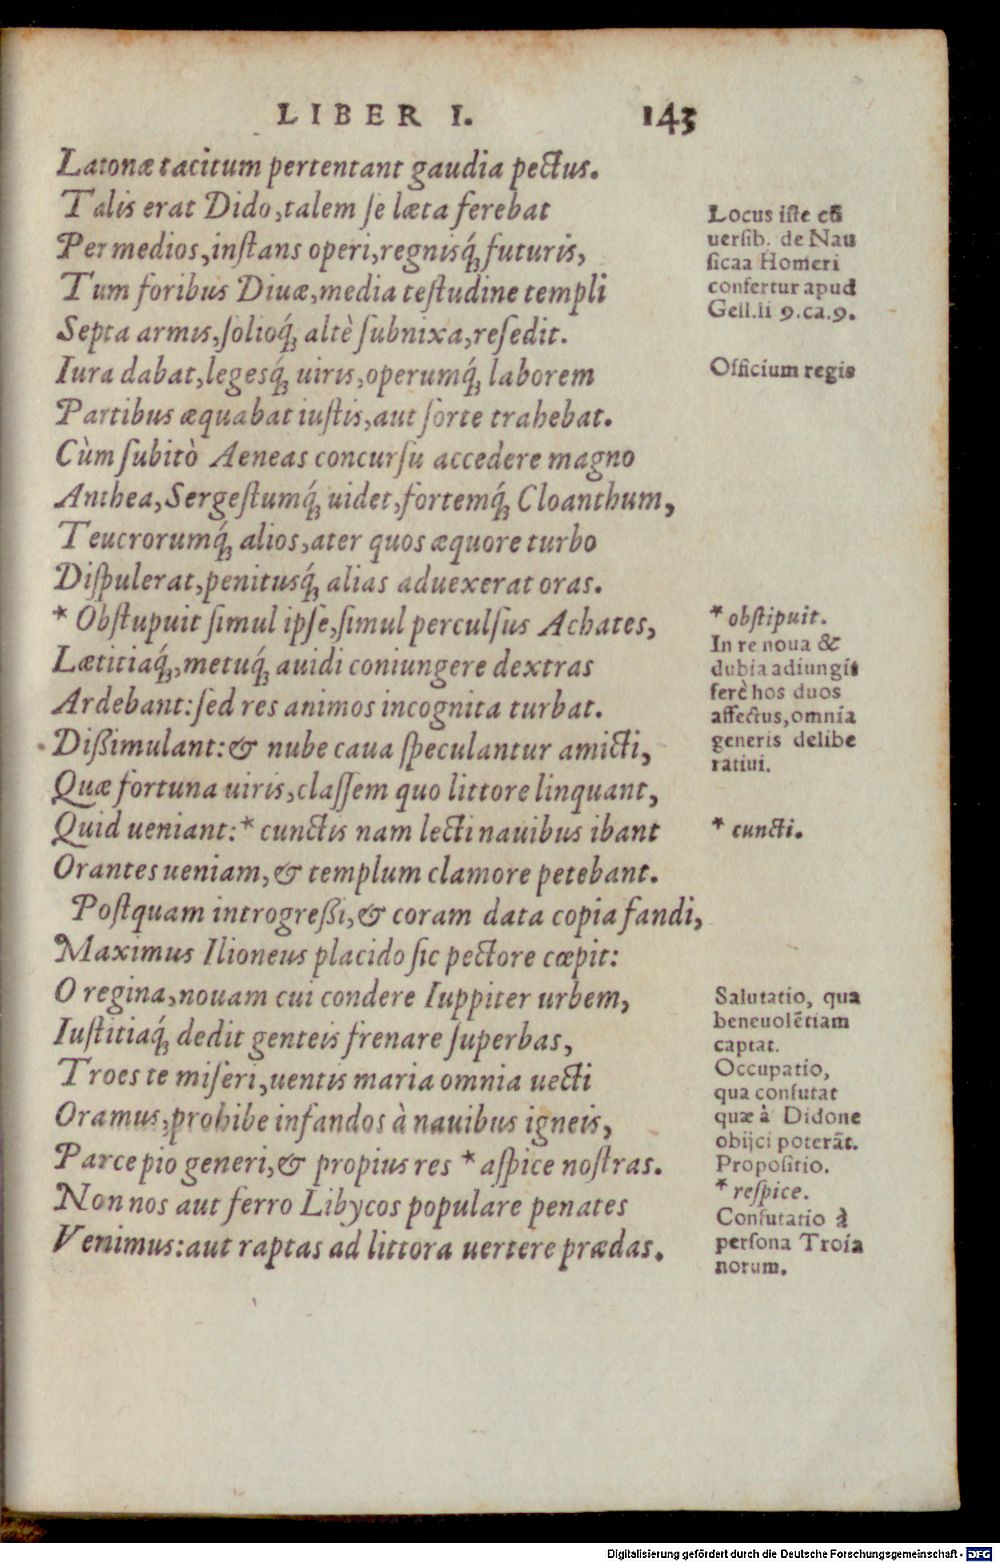 LIBER I. 143
Latonæ tacitum pertentant gaudia pectus.
Talis erat Dido, talem se læta ferebat
Per medios, instans operi, regnisq́; futuris,
Tum foribus Diuæ, media testudine templi
Septa armis, solioq́; altè subnixa, resedit.
Iura dabat, legesq́; uiris, operumq́; laborem
Partibus æquabat iustis, aut sorte trahebat.
Cùm subitò Aeneas concursu accedere magno
Anthea, Sergestumq́; uidet, fortemq́; Cloanthum,
Teucrorumq́; alios, ater quos æquore turbo
Dispulerat, penitusq́; alias aduexerat oras.
* Obstupuit simul ipse, simul perculsus Achates,
Lætitiaq́;, metuq́; auidi coniungere dextras
Ardebant: sed res animos incognita turbat.
Dißimulant: & nube caua speculantur amicti,
Quæ fortuna uiris, classem quo littore linquant,
Quid ueniant: * cunctis nam lecti nauibus ibant
Orantes ueniam, & templum clamore petebant.
Postquam introgreßi, & coram data copia fandi,
Maximus Ilioneus placido sic pectore cœpit:
O regina, nouam cui condere Iuppiter urbem,
Iustitiaq́; dedit genteis frenare superbas,
Troes te miseri, uentis maria omnia uecti
Oramus, prohibe infandos à nauibus igneis,
Parce pio generi, & propius res * aspice nostras.
Non nos aut ferro Libycos populare penates
Venimus: aut raptas ad littora uertere prædas.
Locus iste cũ
uersib. de Nau
sicaa Homeri
confertur apud
Gell. li 9. ca. 9.
Officium regis
* obstipuit.
In re noua &
dubia adiungit
ferè hos duos
affectus, omnia
generis delibe
ratiui.
* cuncti.
Salutatio, qua
beneuolẽtiam
captat.
Occupatio,
qua confutat
quæ à Didone
obijci poterãt.
Propositio.
* respice.
Confutatio à
persona Troia
norum.
Digitalisierung gefördert durch die Deutsche Forschungsgemeinschaft - DFG